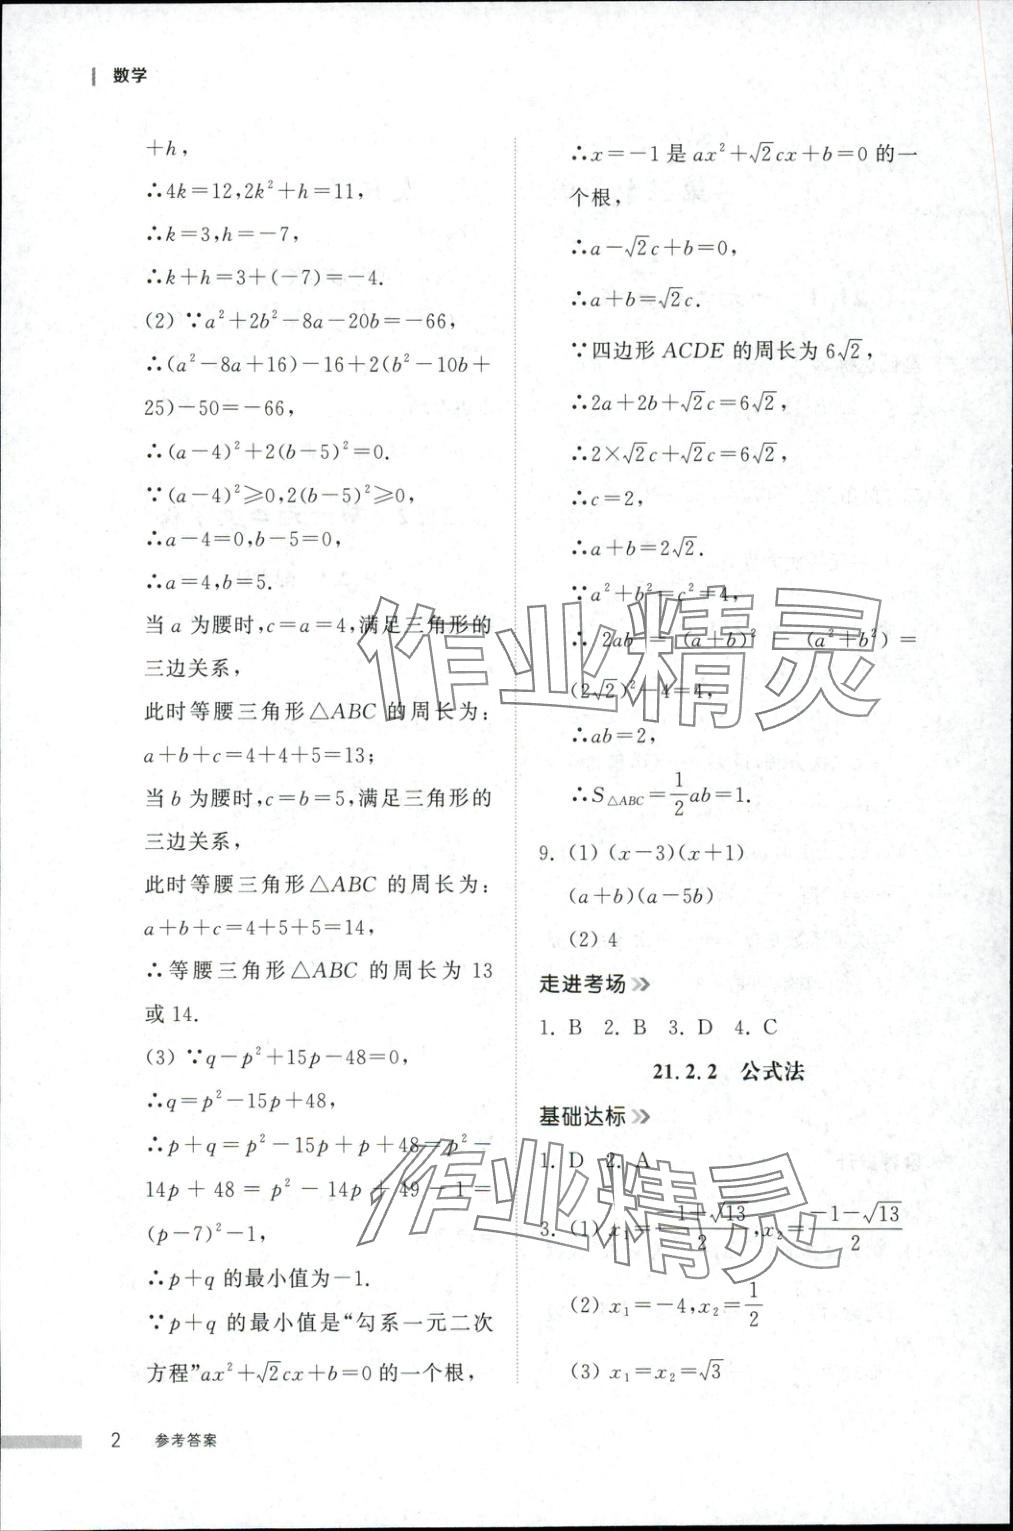 数学
+h，
∴4k=12,2k²+h=11，
∴k=3,h=-7，
∴k+h=3+(-7)=-4.
(2) ∵a²+2b²-8a-20b=-66，
∴(a²-8a+16)-16+2(b²-10b+
25)-50=-66，
∴(a-4)²+2(b-5)²=0.
∵(a-4)²≥0,2(b-5)²≥0，
∴a-4=0,b-5=0，
∴a=4,b=5.
当a为腰时,c=a=4,满足三角形的
三边关系，
此时等腰三角形△ABC的周长为：
a+b+c=4+4+5=13；
当b为腰时,c=b=5,满足三角形的
三边关系，
此时等腰三角形△ABC的周长为：
a+b+c=4+5+5=14，
∴等腰三角形△ABC的周长为13
或14.
(3) ∵q-p²+15p-48=0，
∴q=p²-15p+48，
∴p+q=p²-15p+p+48=p²-
14p+48=p²-14p+49-1=
(p-7)²-1，
∴p+q的最小值为-1.
∵p+q的最小值是“勾系一元二次
方程”ax²+√2cx+b=0的一个根，
∴x=-1是ax²+√2cx+b=0的一
个根，
∴a-√2c+b=0，
∴a+b=√2c.
∵四边形ACDE的周长为6√2，
∴2a+2b+√2c=6√2，
∴2×√2c+√2c=6√2，
∴c=2，
∴a+b=2√2.
∵a²+b²=c²=4，
∴2ab=(a+b)²-(a²+b²)=
(2√2)²-4=4，
∴ab=2，
∴S△ABC=1/2ab=1.
9. (1) (x-3)(x+1)
(a+b)(a-5b)
(2) 4
走进考场
1. B 2. B 3. D 4. C
21.2.2 公式法
基础达标
1. D 2. A
3. (1) x₁=(-1+√13)/2,x₂=(-1-√13)/2
(2) x₁=-4,x₂=1/2
(3) x₁=x₂=√3
2 参考答案
作业精灵
作业精灵